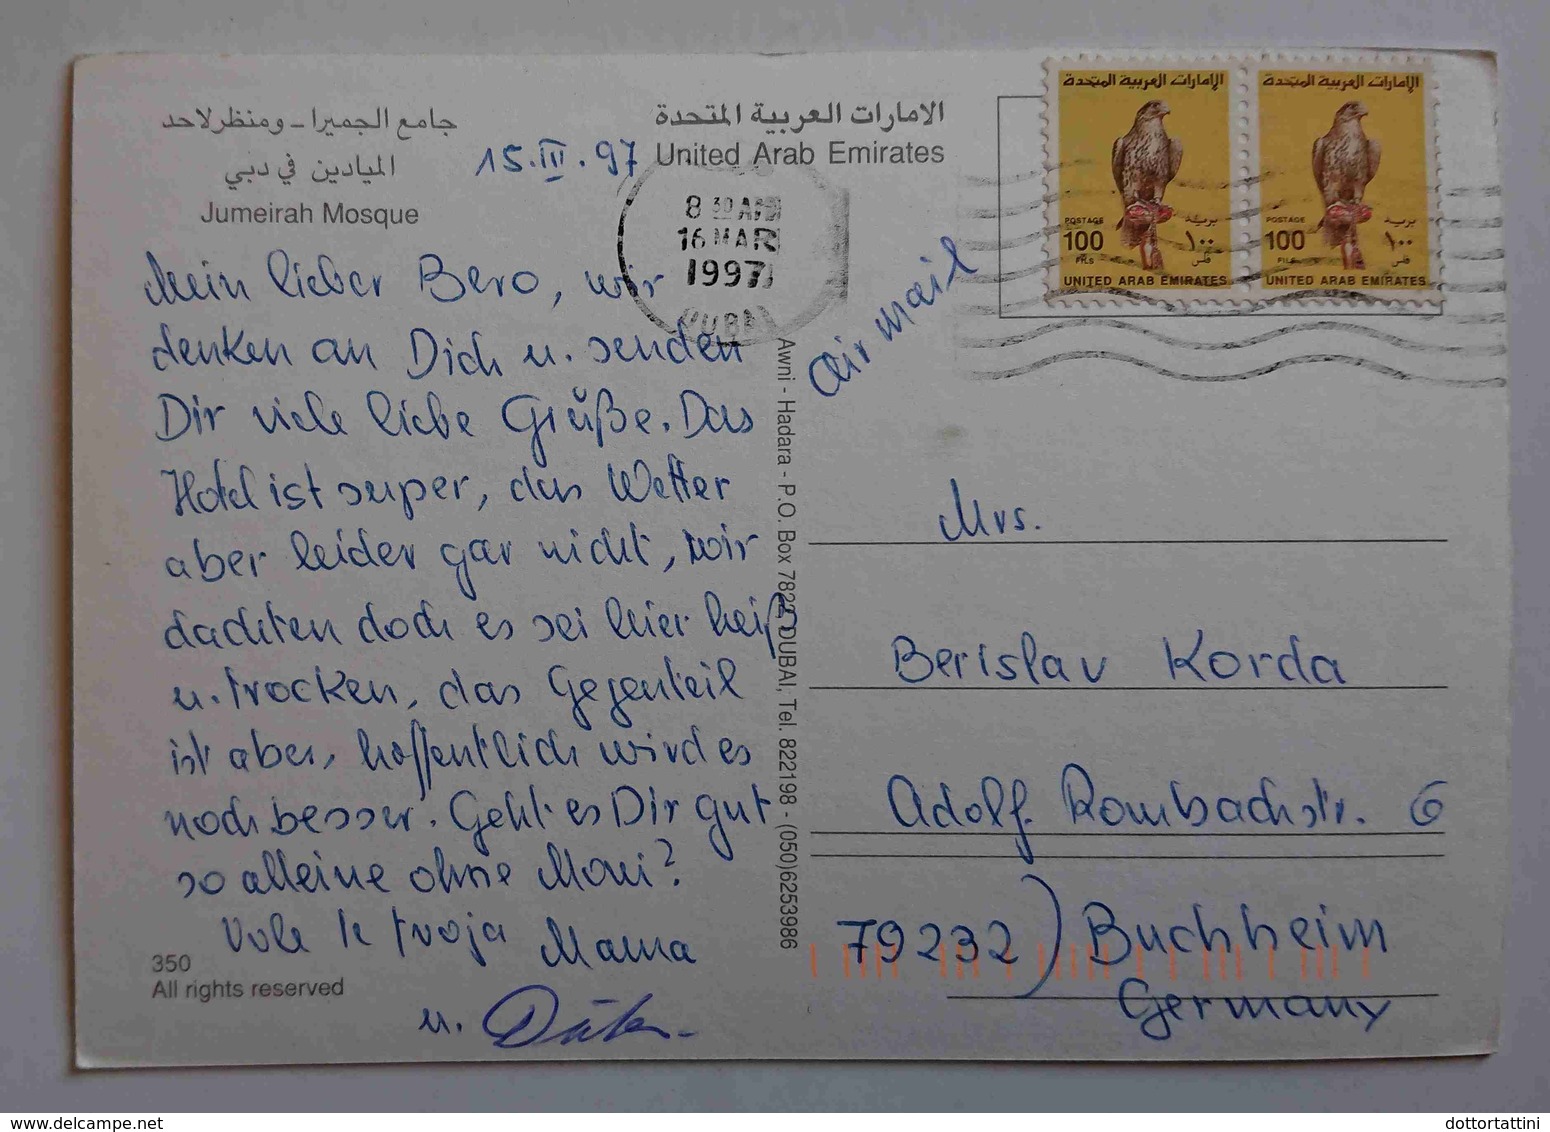 جامع الجميرا - ومنظر لاحد
الميادين في دبي
Jumeirah Mosque
15.III.97
الامارات العربية المتحدة
United Arab Emirates
8 30 AM
16 MAR
1997
DUBAI
الإمارات العربية المتحدة
POSTAGE بريد
100 ١٠٠
FILS فلس
UNITED ARAB EMIRATES
الإمارات العربية المتحدة
POSTAGE بريد
100 ١٠٠
FILS فلس
UNITED ARAB EMIRATES
air mail
Mein lieber Bero, wir
denken an Dich u. senden
Dir viele liebe Grüße. Das
Hotel ist super, das Wetter
aber leider gar nicht, wir
dachten doch es sei hier heiß
u. trocken, das Gegenteil
ist aber, hoffentlich wird es
noch besser. Geht es Dir gut
so alleine ohne Moni?
Vole te tvoja Mama
u.
350
All rights reserved
Awni - Hadara - P.O. Box 7822 DUBAI, Tel. 822198 - (050)6253986
Mrs.
Berislav Korda
Adolf. Rombachstr. 6
79232) Buchheim
Germany
dottortattini